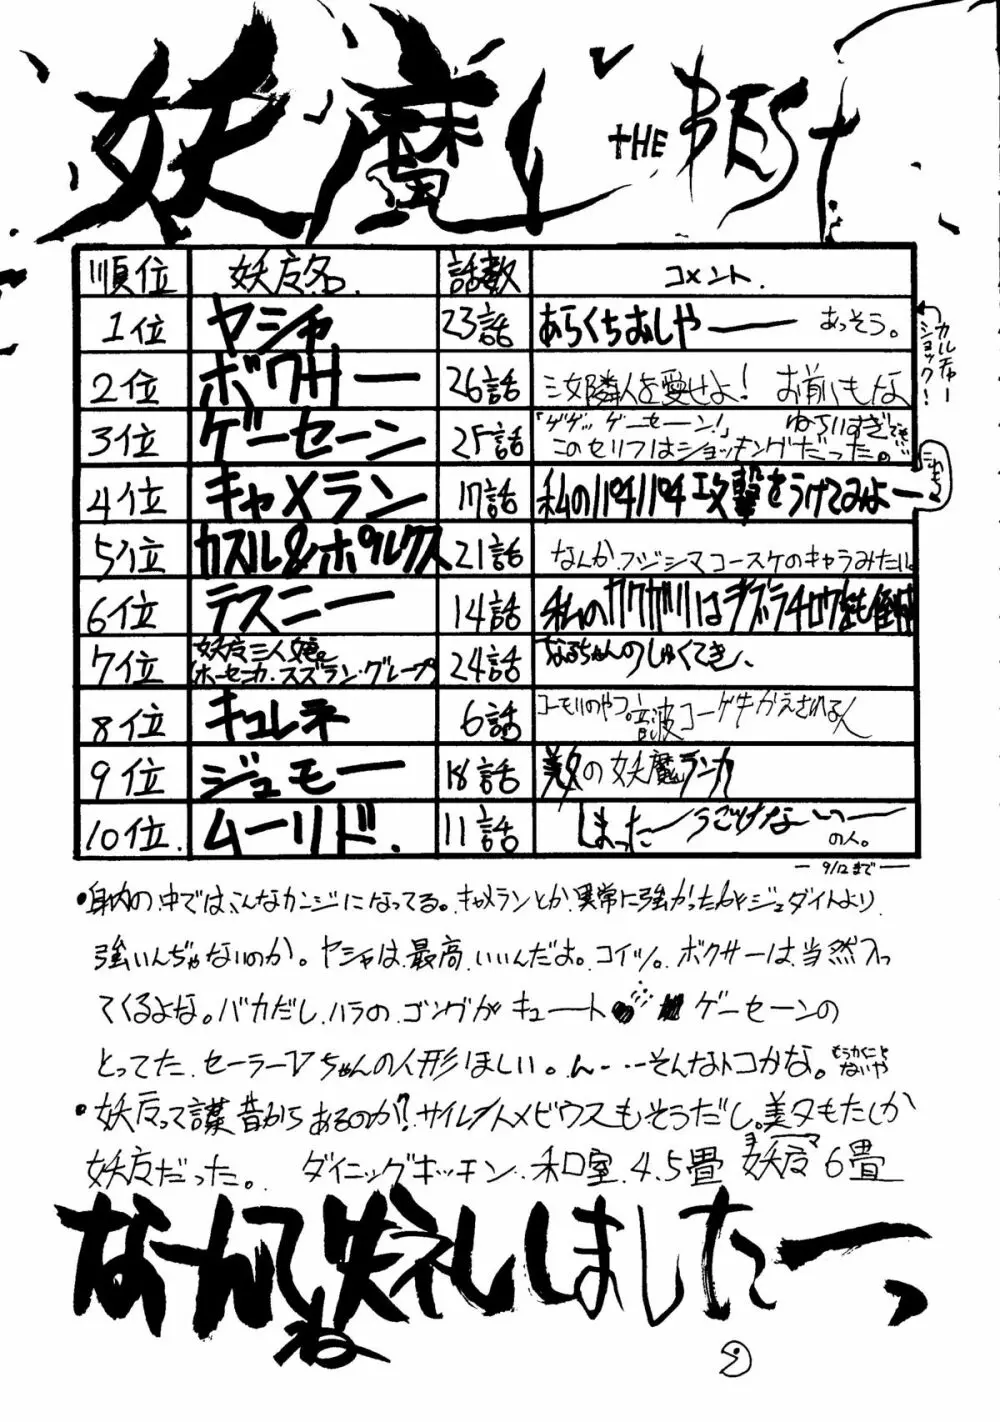 妖魔 THE BEST
順位 妖广名 話数 コメント.
1位 ヤシャ 23話 あらくちおしやー あっそう。
カルチャーショック!
2位 ボクサー 26話 三女隣人を愛せよ! お前にもな
3位 ゲーセーン 25話 「ゲゲッ ゲーセーン!」
このセリフはショッキングだった。
4位 キャメラン 17話 私のパチパチ攻撃をうけてみよー
5位 カスル&ポルクス 21話 なんかフジシマコースケのキャラみたい。
6位 テスニー 14話
7位 妖广三人娘。
ホーセンカ.スズラン.グレープ 24話 なるちゃんのしゅくてき、
8位 キュレネ 6話 コーモリのやつ。音波コーゲキかえされる人
9位 ジュモー 18話 美夕の妖魔ランカ
10位. ムーリド. 11話 しまったーうごけないっー
の人。
— 9/12まで —
•身内の中では、こんなカンジになってる。キャメランとか異常に強かったわとジュダイトより
強いんぢゃないのか。ヤシャは最高.いいんだよ。コイツ。ボクサーは当然入っ
てくるよな。バカだし.ハラの.ゴングがキュート ゲーセーンの
とってた.セーラーVちゃんの人形ほしい。ん・・・そんなトコかな。もうかくことないや
•妖广って謀昔からあるのか?サイレントメビウスもそうだし。美夕もたしか
妖广だった。 ダイニングキッチン.和室.4.5畳 妖广6畳
ヨーマ
なーんてね失礼しましたーっ